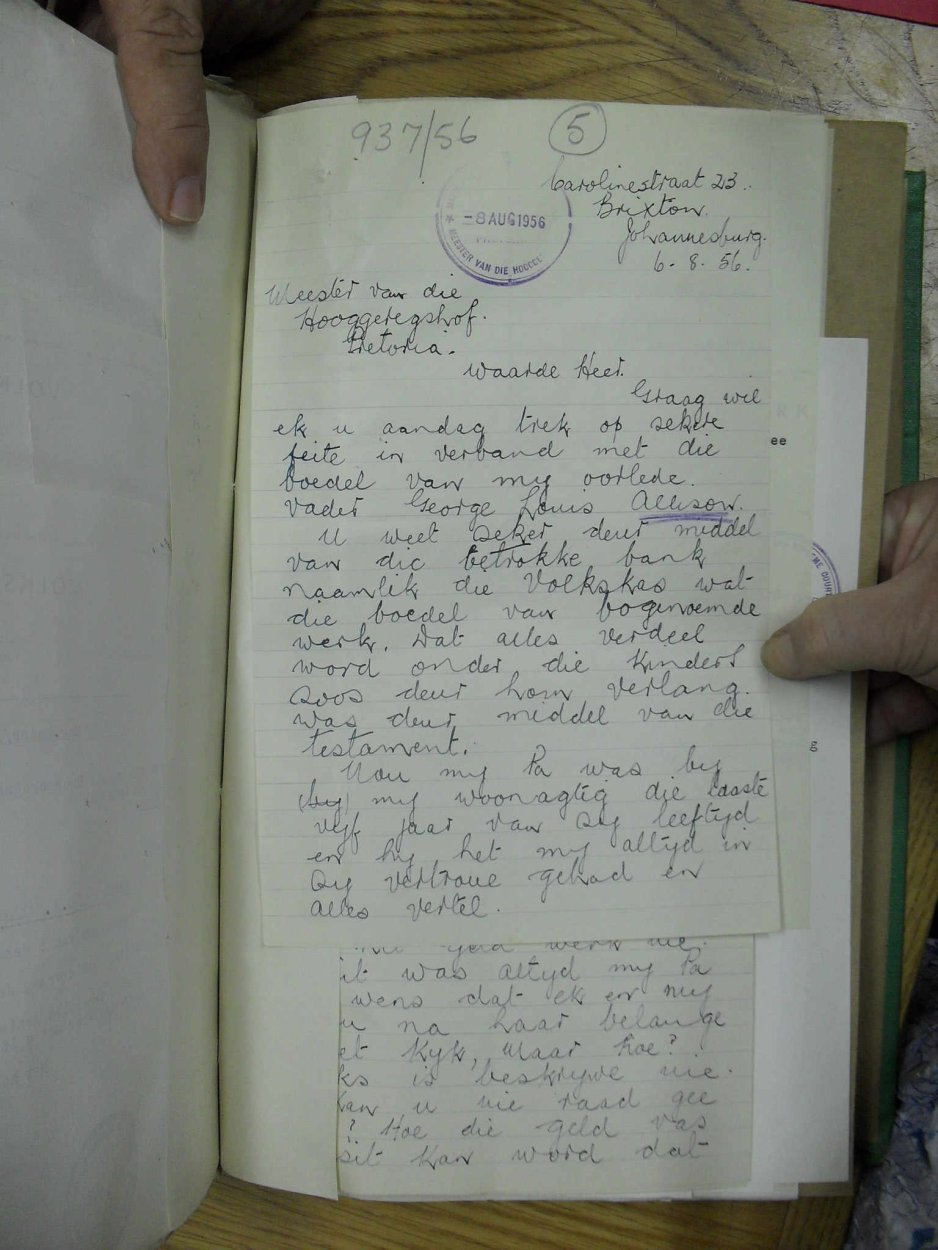 937/56 5
-8 AUG 1956
MEESTER VAN DIE HOOGGE
Carolinestraat 23.
Brixton.
Johannesburg.
6-8.56.
Meester van die
Hooggeregshof.
Pretoria.
Waarde Heer.
Graag wil
ek u aandag trek op sekere
feite in verband met die
boedel van my oorlede.
vader George Louis Allison.
U weet seker deur middel
van die betrokke bank
naamlik die Volkskas wat
die boedel van bogenoemde
werk. Dat alles verdeel
word onder die kinders
soos deur hom verlang.
was deur middel van die
testament.
Nou my Pa was by
(by) my woonagtig die laaste
vyf jaar van sy leeftyd
en hy het my altyd in
sy vertroue gehad en
alles vertel.
geld werk nie.
it was altyd my Pa
wens dat ek en my
u na haar belange
et kyk, Maar hoe?
ks is beskrywe nie.
kan u nie raad gee
? Hoe die geld vas
sit kan word dat
ee
g